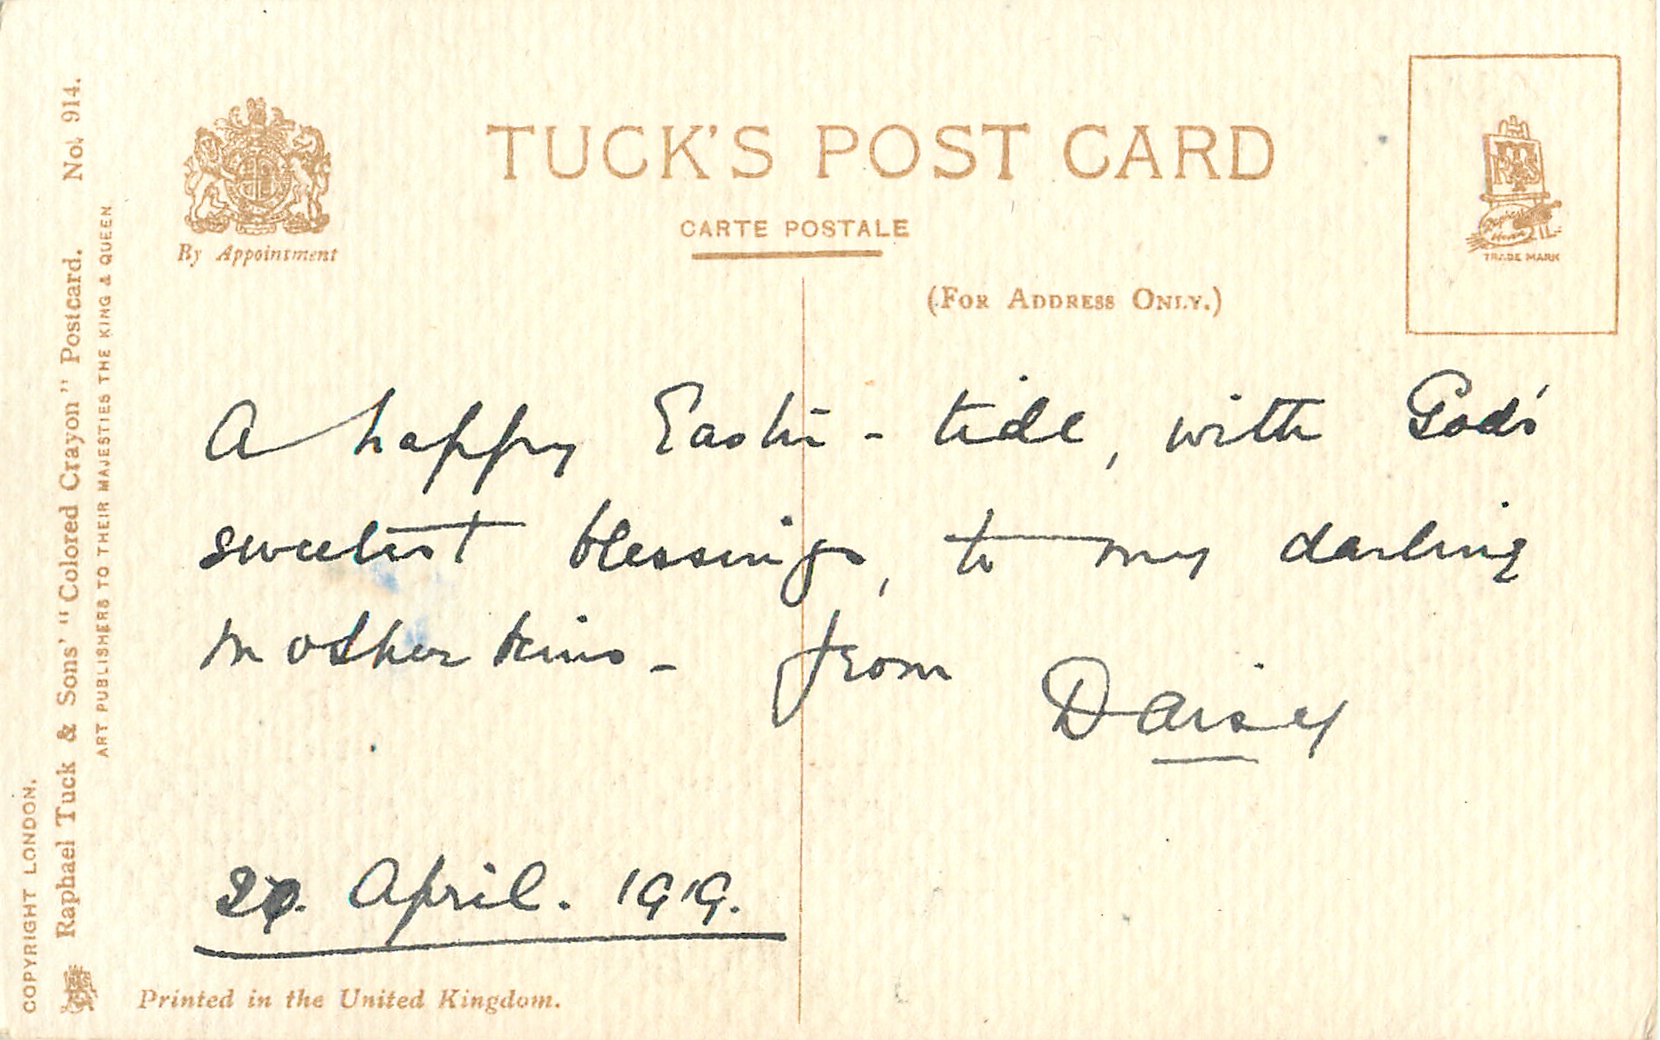 TUCK'S POST CARD
CARTE POSTALE
(FOR ADDRESS ONLY.)
By Appointment
TRADE MARK
A happy Easter-tide, with God's
sweetest blessings, to my darling
Motherkins - from Daisy
20. April. 1919.
Printed in the United Kingdom.
COPYRIGHT LONDON.
Raphael Tuck & Sons' "Colored Crayon" Postcard. No. 914.
ART PUBLISHERS TO THEIR MAJESTIES THE KING & QUEEN